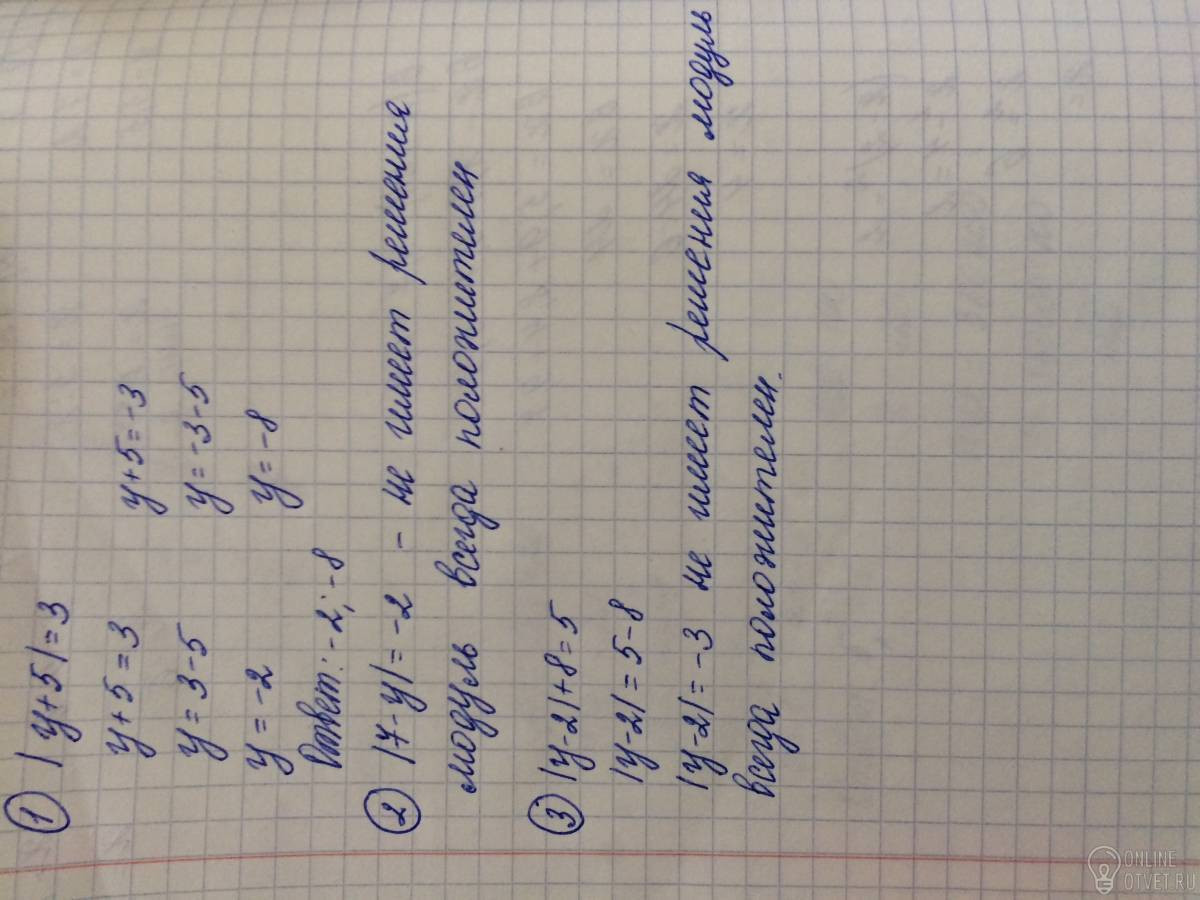 ① |y+5|=3
y+5=3 y+5=-3
y=3-5 y=-3-5
y=-2 y=-8
Ответ: -2; -8
② |7-y|=-2 - не имеет решения
модуль всегда положителен
③ |y-2|+8=5
|y-2|=5-8
|y-2|=-3 не имеет решения модуль
всегда положителен.
ONLINE
OTVET.RU